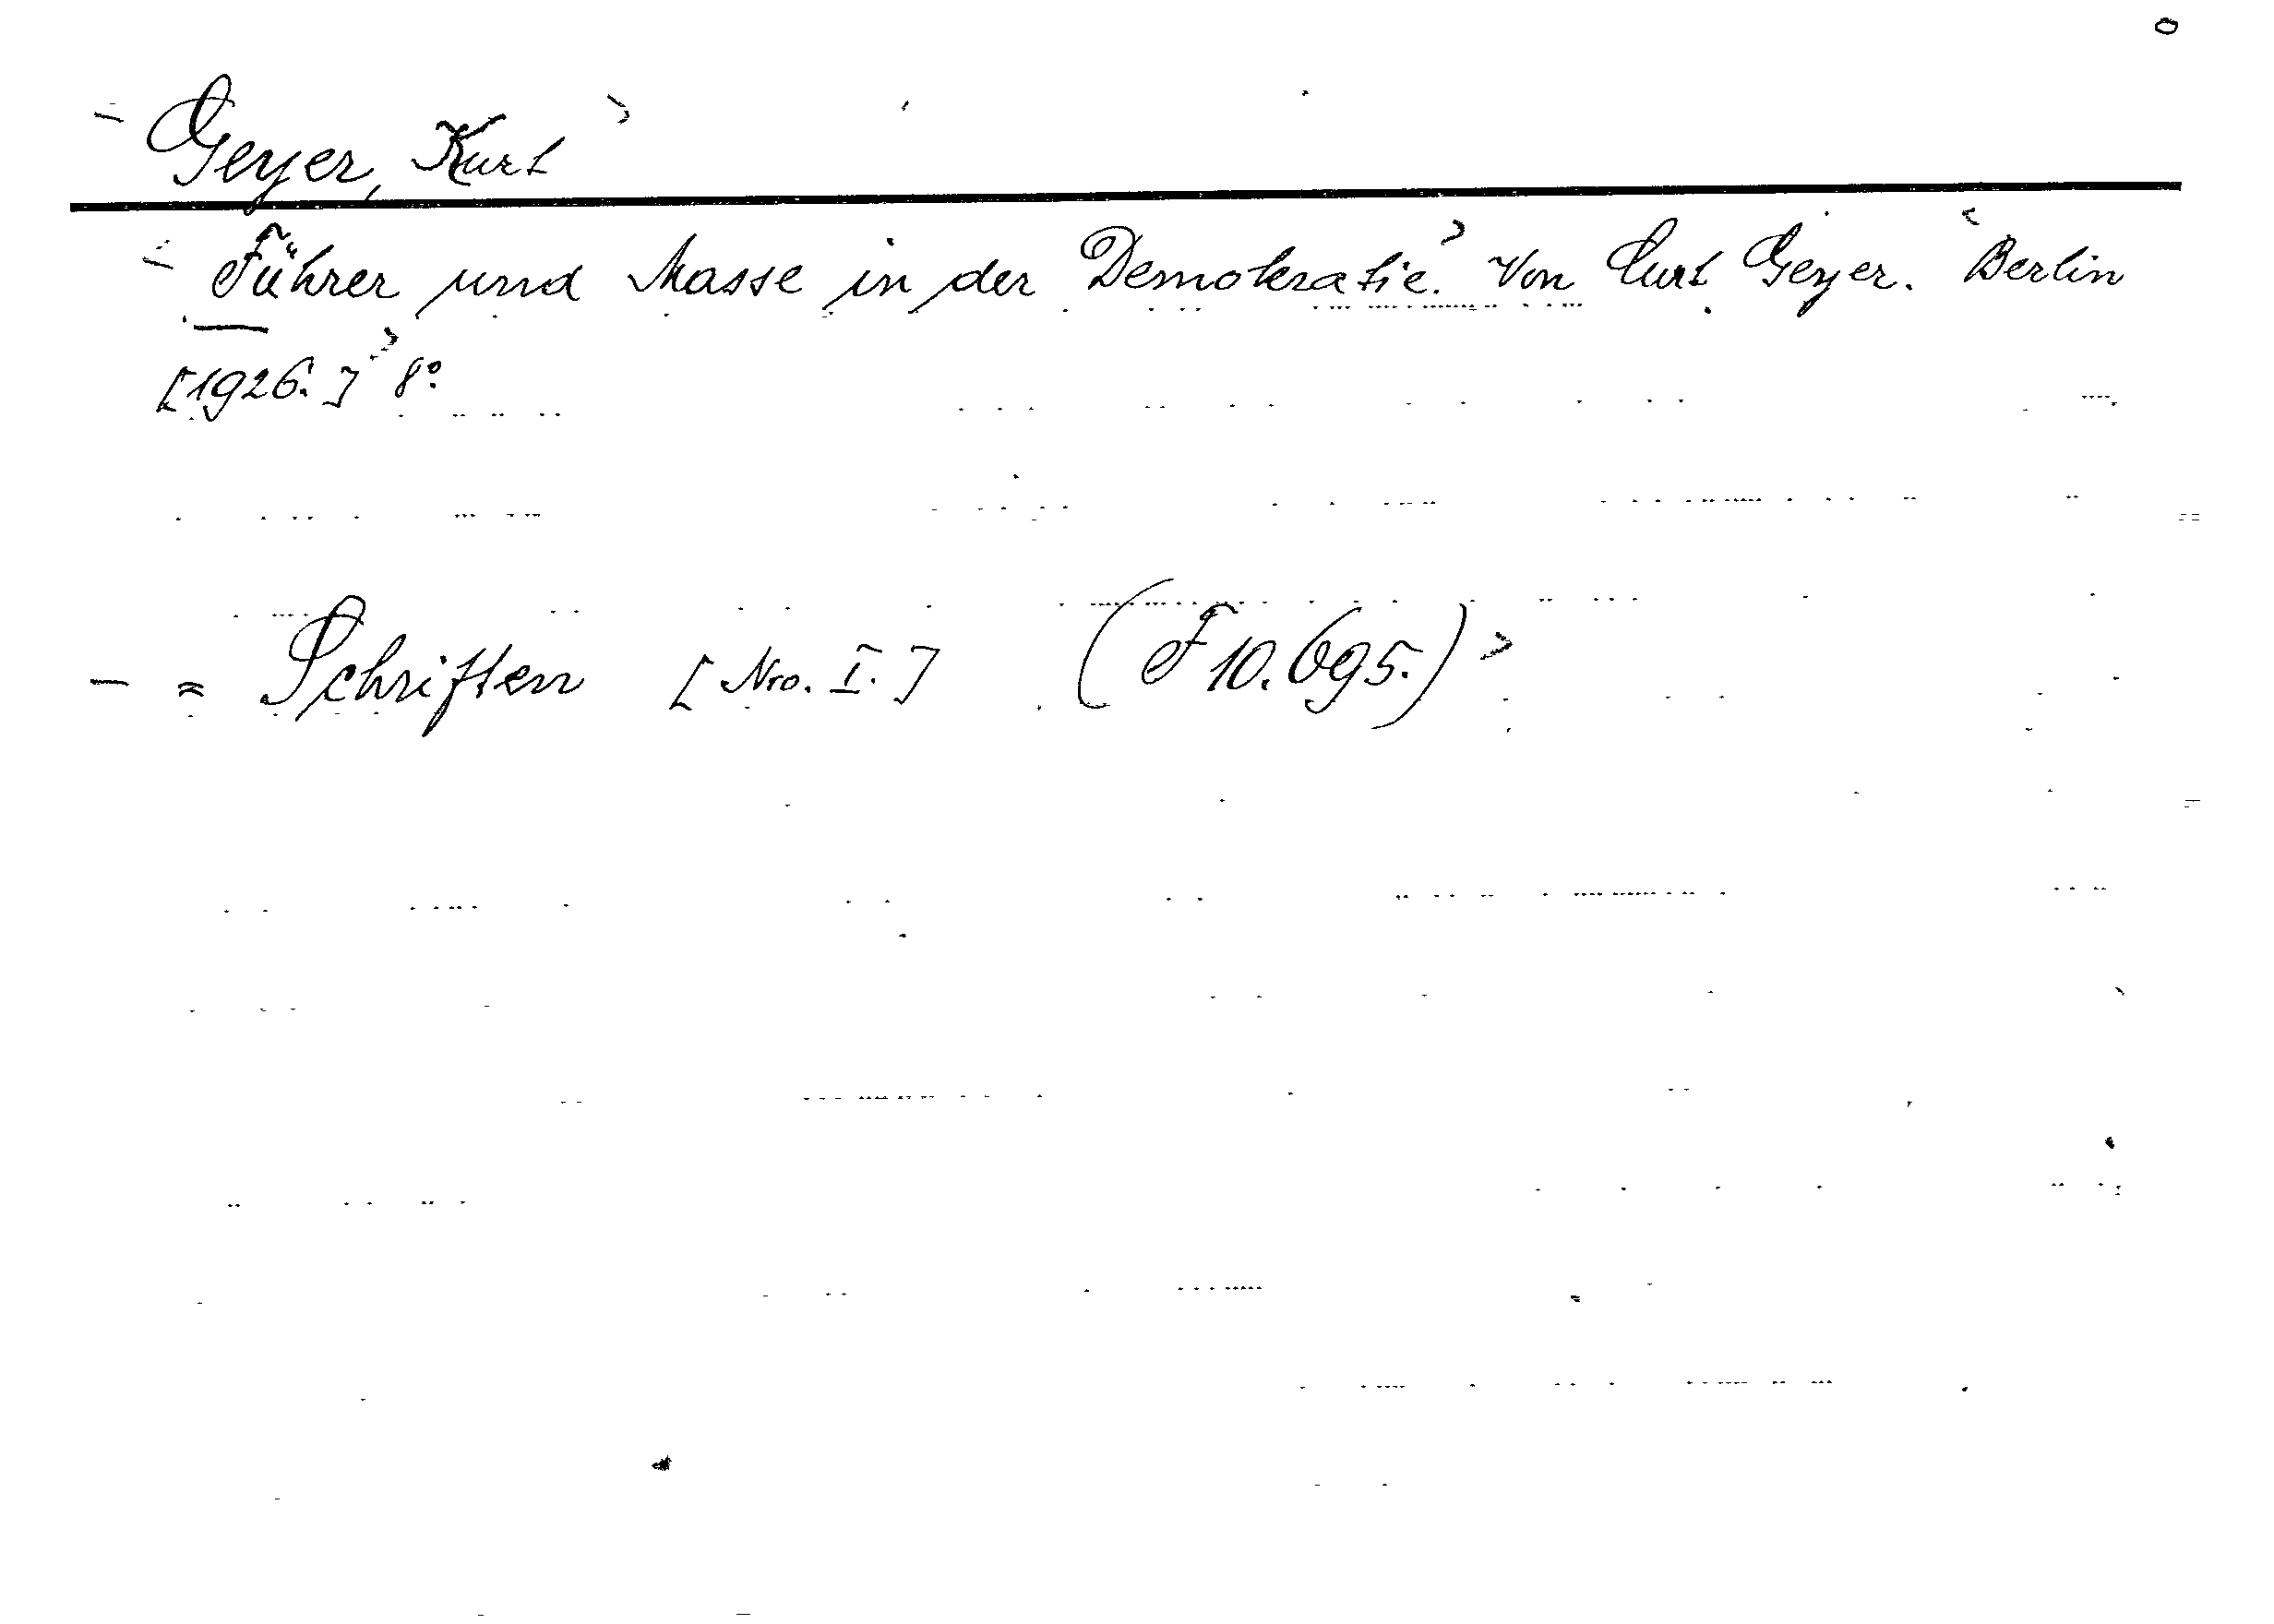 Geyer, Kurt
Führer und Masse in der Demokratie. Von Curt Geyer. Berlin
[1926.] 8°.
= Schriften [Nro. I.] (F 10.695.)